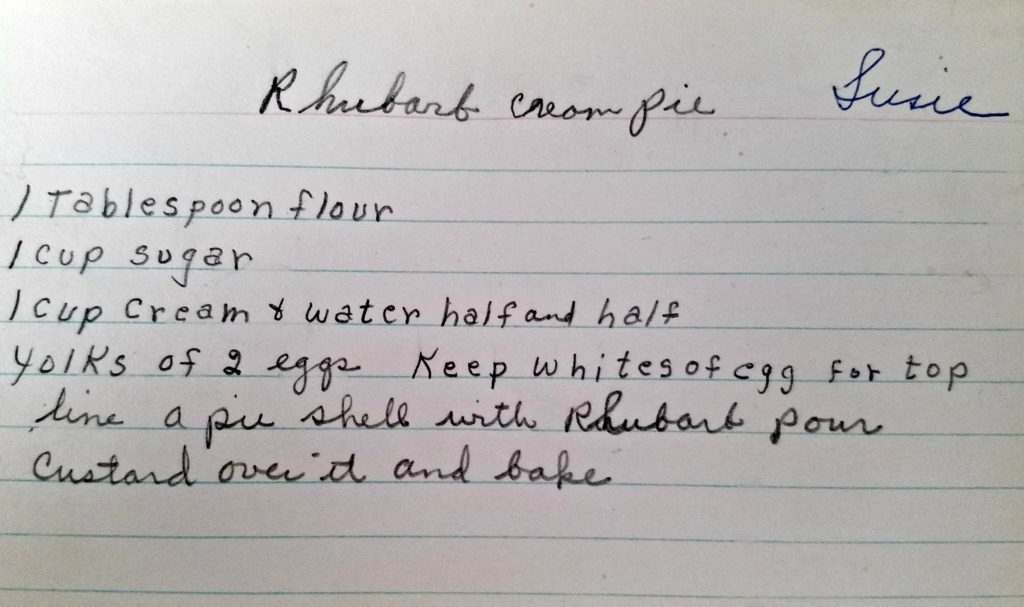 Rhubarb cream pie Susie
1 Tablespoon flour
1 cup sugar
1 cup cream & water half and half
yolks of 2 eggs Keep whites of egg for top
line a pie shell with Rhubarb pour
Custard over it and bake